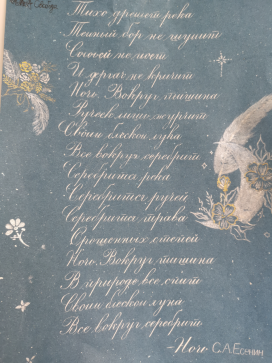 Тихо дремлет река
Темный бор не шумит
Соловей не поет
И дергач не кричит
Ночь. Вокруг тишина
Ручеек лишь журчит
Своим блеском луна
Все вокруг серебрит
Серебрится река
Серебрится ручей
Серебрится трава
Орошенных степей
Ночь. Вокруг тишина
В природе все спит
Своим блеском луна
Все вокруг серебрит
-Ночь С.А.Есенин